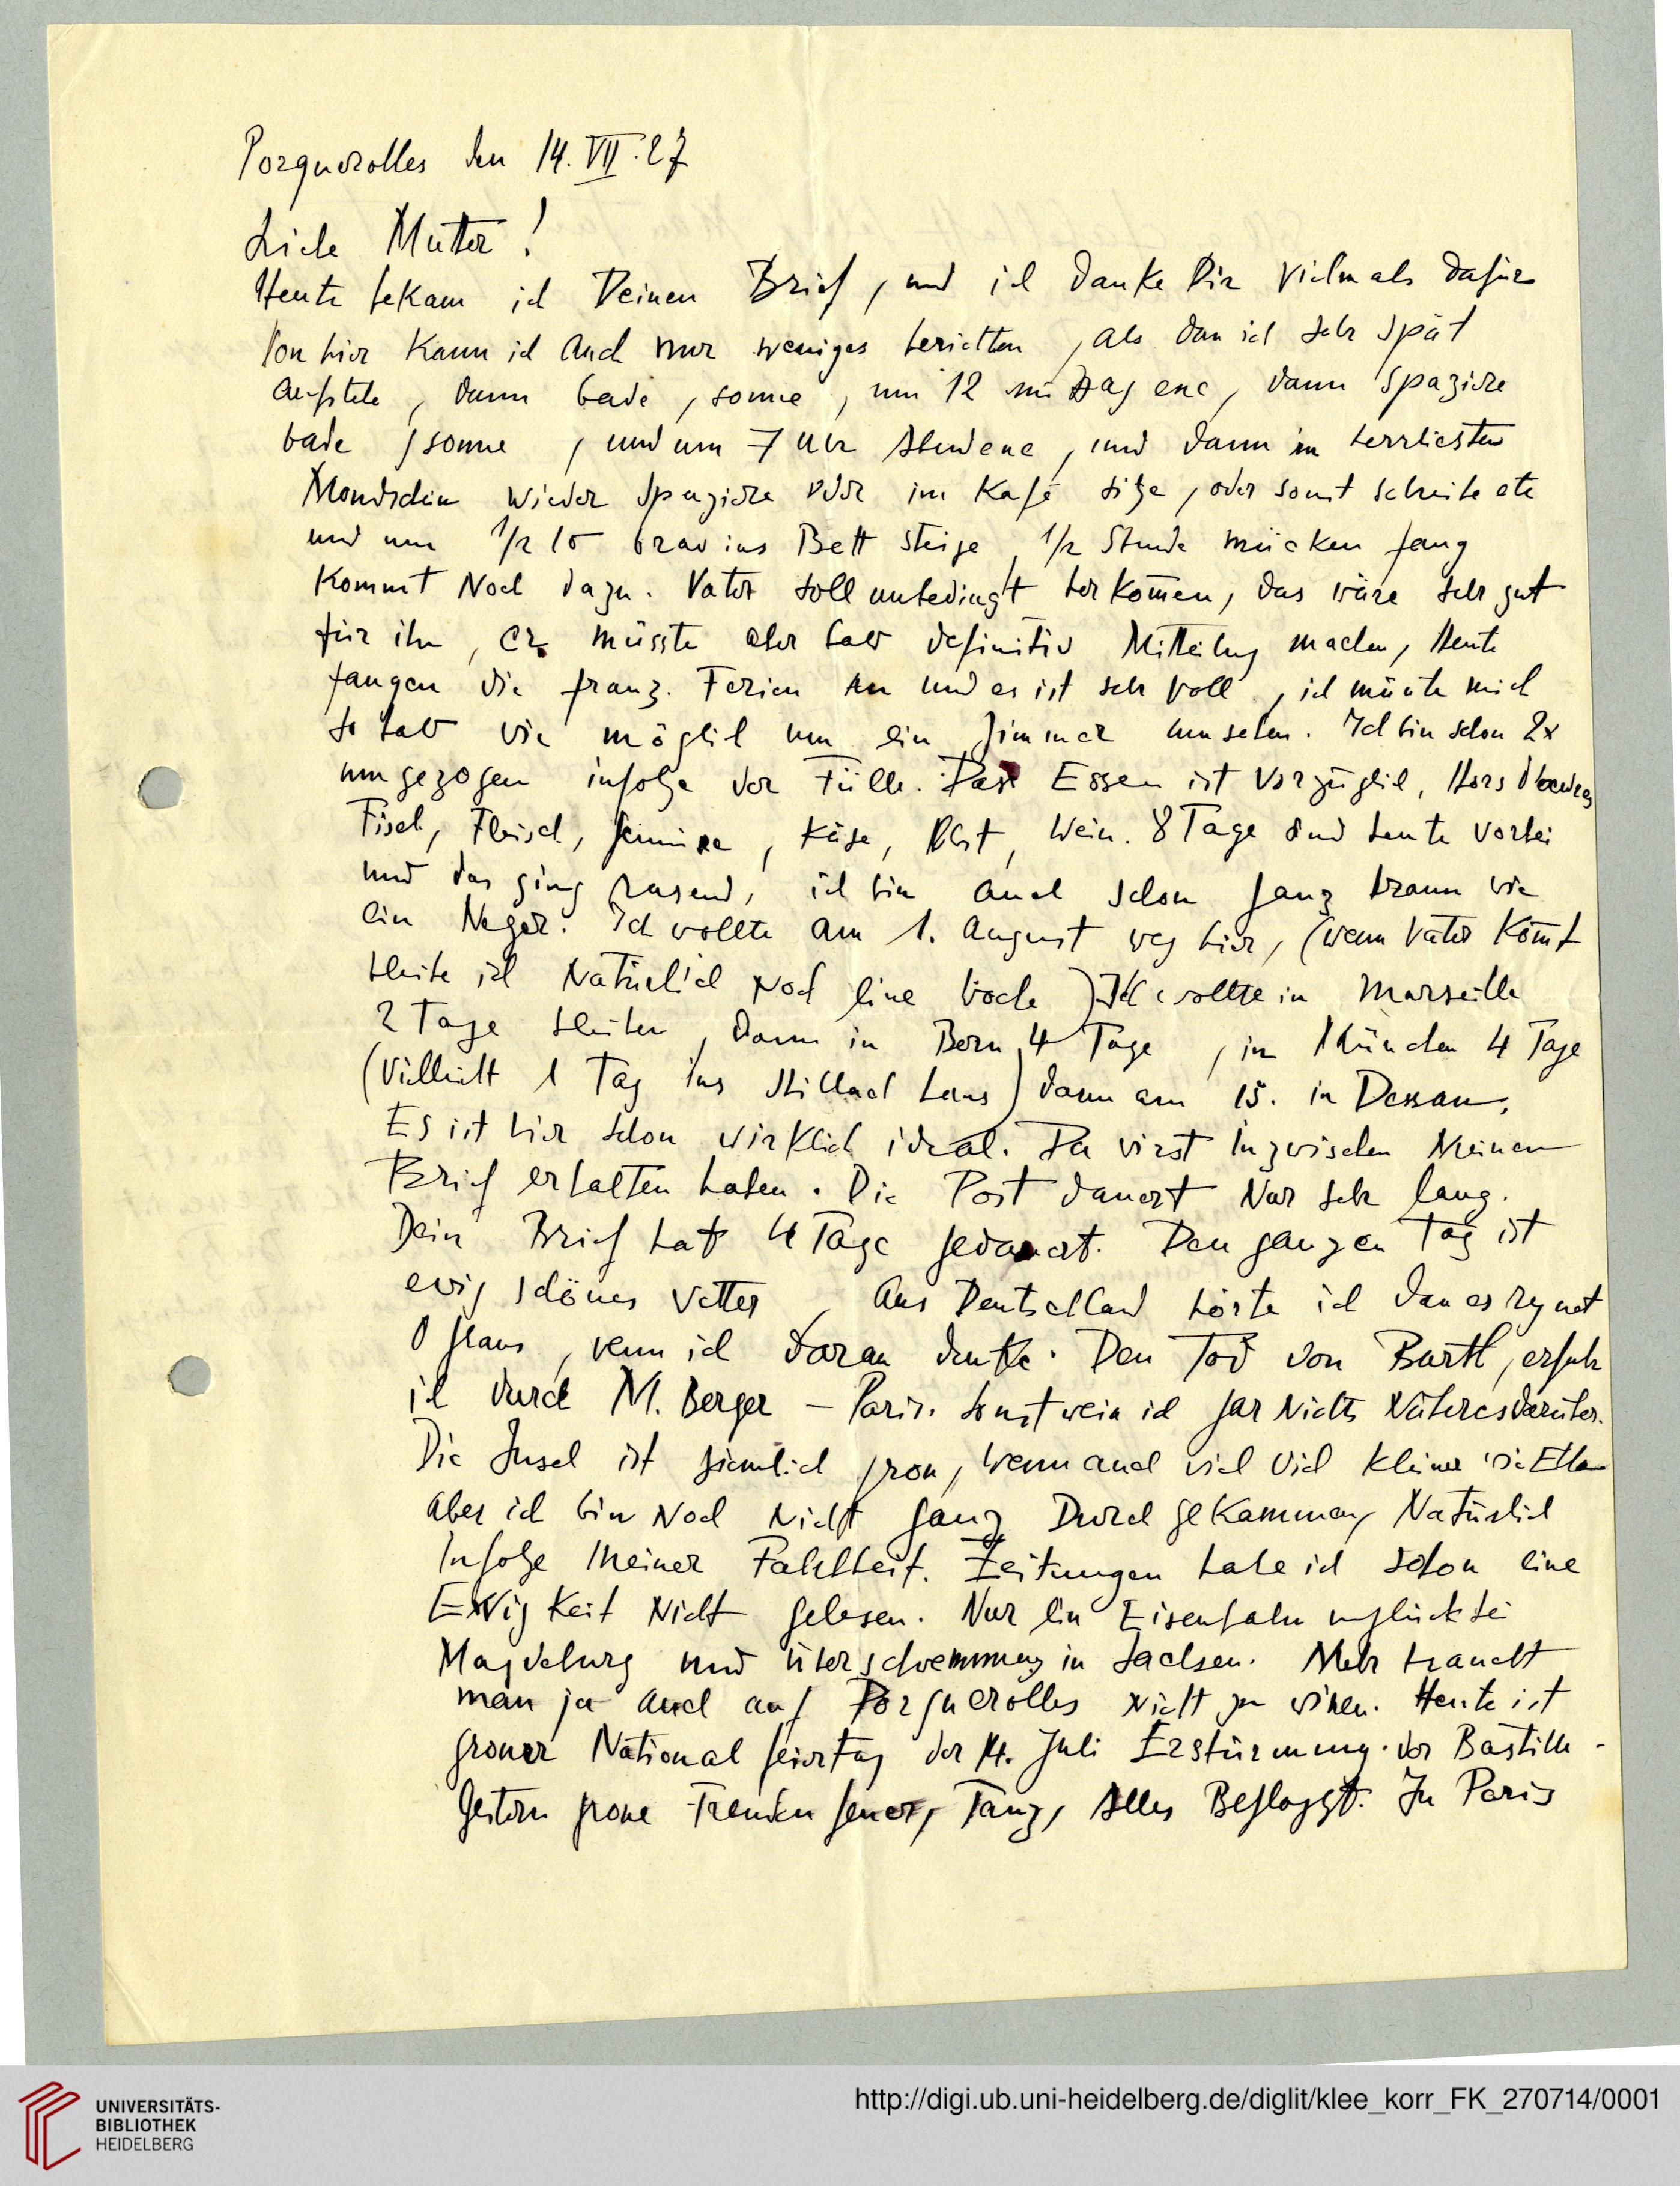 Porquerolles den 14. VII. 27
Liebe Mutter!
Heute bekam ich Deinen Brief, und ich danke Dir vielmals dafür
Von hier kann ich auch nur weniges berichten, als dass ich sehr spät
aufstehe, dann bade, sonne, um 12 mittag esse, dann spaziere
bade, sonne, und um 7 Uhr Abendesse, und dann im herrlichsten
Mondschein wieder spaziere oder im Kafé sitze, oder sonst schreibe etc
und um 1/2 10 brav ins Bett steige, 1/2 Stunde mückenfang
kommt Noch dazu. Vater soll unbedingt herkom̄en, das wäre sehr gut
für ihn, er müsste aber bald definitiv Mitteilung machen, Heute
fangen die franz. Ferien an und es ist sehr voll, ich müsste mich
so bald wie möglich um ein Zimmer umsehen. Ich bin schon 2x
umgezogen infolge der Fülle. Das Essen ist vorzüglich, Hors d'oeuvres
Fisch, Fleisch, Gemüse, Käse, Obst, Wein. 8 Tage sind heute vorbei
und das ging rasend, ich bin auch schon ganz braun wie
ein Neger. Ich wollte am 1. August weg hier, (wenn Vater kom̄t
bleibe ich Natürlich Noch eine Woche) Ich wollte in Marseille
2 Tage bleiben, dann in Bern 4 Tage, in München 4 Tage
(Vielleicht 1 Tag ins Stillachhaus) dann am 15. in Dessau.
Es ist hier schon wirklich ideal. Du wirst inzwischen Meinen
Brief erhalten haben. Die Post dauert Nur sehr lang.
Dein Brief hat 4 Tage gedauert. Den ganzen Tag ist
ewig schönes Wetter, Aus Deutschland hörte ich dass es regnet
O Graus, wenn ich daran denke. Den Tod von Barth, erfuhr
ich durch M. Berger – Paris. Sonst weiss ich gar Nichts Näheres darüber.
Die Insel ist ziemlich gross, wenn auch viel viel kleiner wie Elba
aber ich bin Noch Nicht ganz Durchgekommen, Natürlich
Infolge Meiner Faulheit. Zeitungen habe ich schon eine
Ewigkeit Nicht gelesen. Nur ein Eisenbahnunglück bei
Magdeburg und Überschwemmung in Sachsen. Mehr braucht
man ja auch auf Porquerolles Nicht zu wissen. Heute ist
grosser Nationalfeiertag der 14. Juli Erstürmung der Bastille –
Gestern grosse Freudenfeuer, Tanz, Alles Beflaggt. In Paris
UNIVERSITÄTS-
BIBLIOTHEK
HEIDELBERG
http://digi.ub.uni-heidelberg.de/diglit/klee_korr_FK_270714/0001